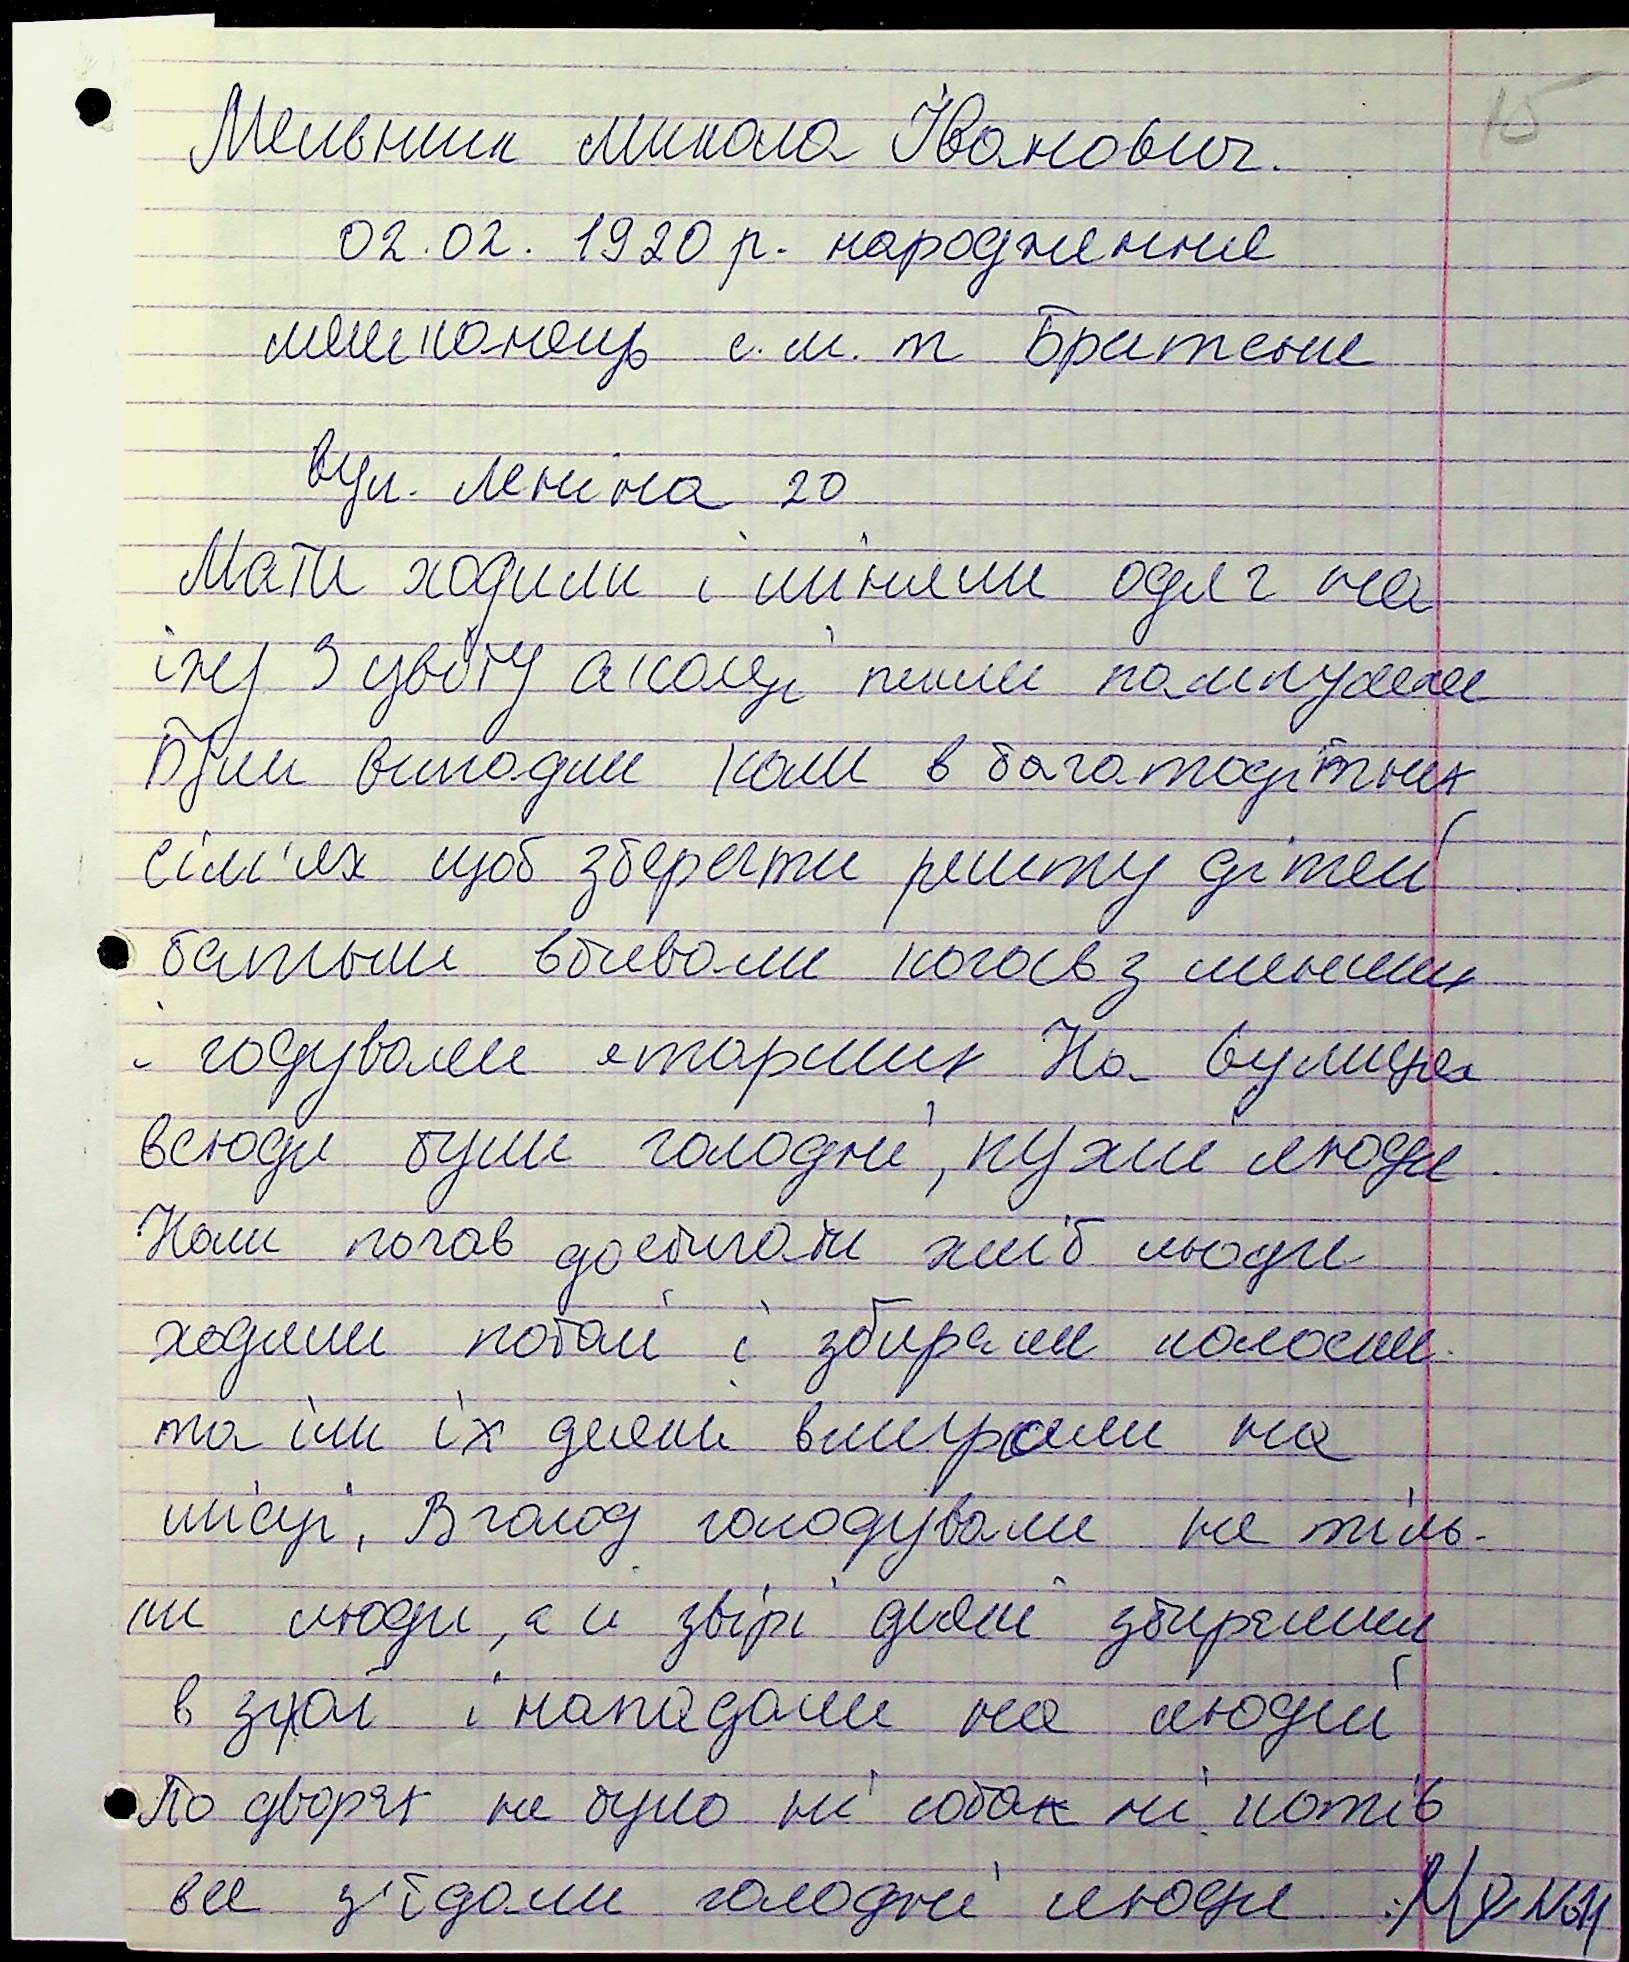 15
Мельник Микола Іванович.
02.02. 1920 р. народження
мешканець с.м.т Братське
вул. Леніна 20
Мати ходили і міняли одяг на
їжу З цвіту акації пекли
Були випадки коли в багатодітних
сім'ях щоб зберегти решту дітей
батьки вбивали когось з менших
і годували старших На вулицях
всюди були голодні, пухлі люди.
Коли почав достигати хліб люди
ходили потай і збирали колоски
та їли їх деякі вмирали на
місці, В голод голодували не тіль-
ки люди, а й звірі деякі збирались
в зграї і нападали на людей
По дворах не було ні собак ні котів
все з'їдали голодні люди.